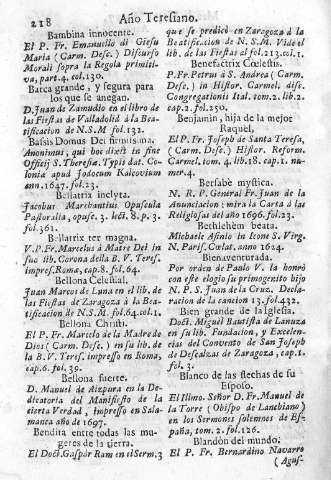 218 Año Teresiano.
Bambina innocente.
El P. Fr. Emanuello di Giesu
Maria (Carm. Desc.) Discurso
Morali sopra la Regola primiti
va, part. 4. col. 130.
Barca grande, y segura para
los que se anegan.
D. Juan de Zamudio en el libro de
las Fiestas de Valladolid à la Bea-
tificacion de N.S.M. fol. 132.
Basis Domus Dei firmissima.
Anonimus, qui hoc dixit in fine
Officij S. Theresiæ. Typis dat. Co-
lonia apud Jodocum Kalcovium
ann. 1647. fol. 23.
Bellatrix inclyta.
Jacobus Marchantius Opuscula
Pastoralia, opusc. 3. lect. 8. p. 3.
fol. 361.
Bellatrix ter magna.
V. P. Fr. Marcelus à Matre Dei in
suo lib. Corona della B. V. Teres.
impres. Roma, cap. 8. fol. 64.
Bellona Celestial.
Juan Marcos de Luna en el lib. de
las Fiestas de Zaragoza à la Bea-
tificacion de N.S.M. fol. 64. col. 1.
Bellona Christi.
El P. Fr. Marcelo de la Madre de
Dios (Carm. Desc.) en su lib. de
la B.V. Teres. impresso en Roma,
cap. 6. fol. 39.
Bellona fuerte.
D. Manuel de Aizpura en la De-
dicatoria del Manifiesto de la
cierta Verdad, impresso en Sala-
manca año de 1697.
Bendita entre todas las mu-
geres de la tierra.
El Doct. Gaspàr Ram en el Serm. 3
que se predicò en Zaragoza à la
Beatificacion de N.S.M. Vide el
lib. de las Fiestas al fol. 213. col. 1.
Benefactrix Cœlestis.
P. Fr. Petrus à S. Andrea (Carm.
Desc.) in Histor. Carmel. disc.
Congregationis Ital. tom. 2. lib. 2.
cap. 2. fol. 250.
Benjamin, hija de la mejor
Raquèl.
El P. Fr. Joseph de Santa Teresa,
(Carm. Desc.) Histor. Reform.
Carmel. tom. 4. lib. 18. cap. 1. nu-
mer. 4.
Bersabè mystica.
N. R. P. General Fr. Juan de la
Anunciacion: mira la Carta à las
Religiosas del año 1696. fol. 23.
Bethlehèm beata.
Michaele Asinio in Icone S. Virg.
N. Paris. Cælat. anno 1624.
Bienaventurada.
Por orden de Paulo V. la honrò
con este elogio su primogenito hijo
N. P. S. Juan de la Cruz. Decla-
racion de la cancion 13. fol. 432.
Bien grande de la Iglesia.
Doct. Miguel Bautista de Lanuza
en su lib. Fundacion, y Excelen-
cias del Convento de San Joseph
de Descalzas de Zaragoza, cap. 1.
fol. 3.
Blanco de las flechas de su
Esposo.
El Illmo. Señor D. Fr. Manuel de
la Torre (Obispo de Lanchiano)
en los Sermones solemnes de Es-
paña, tom. 2. fol. 126.
Blandòn del mundo.
El P. Fr. Bernardino Navarro
(Agus-